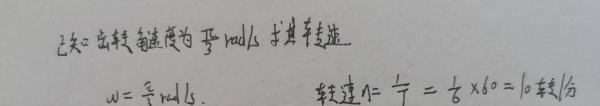 已知：齿转角速度为 π/3 rad/s 求其转速
ω = π/3 rad/s. 转速 n = 1/T = 1/6 ×60 = 10 转/分